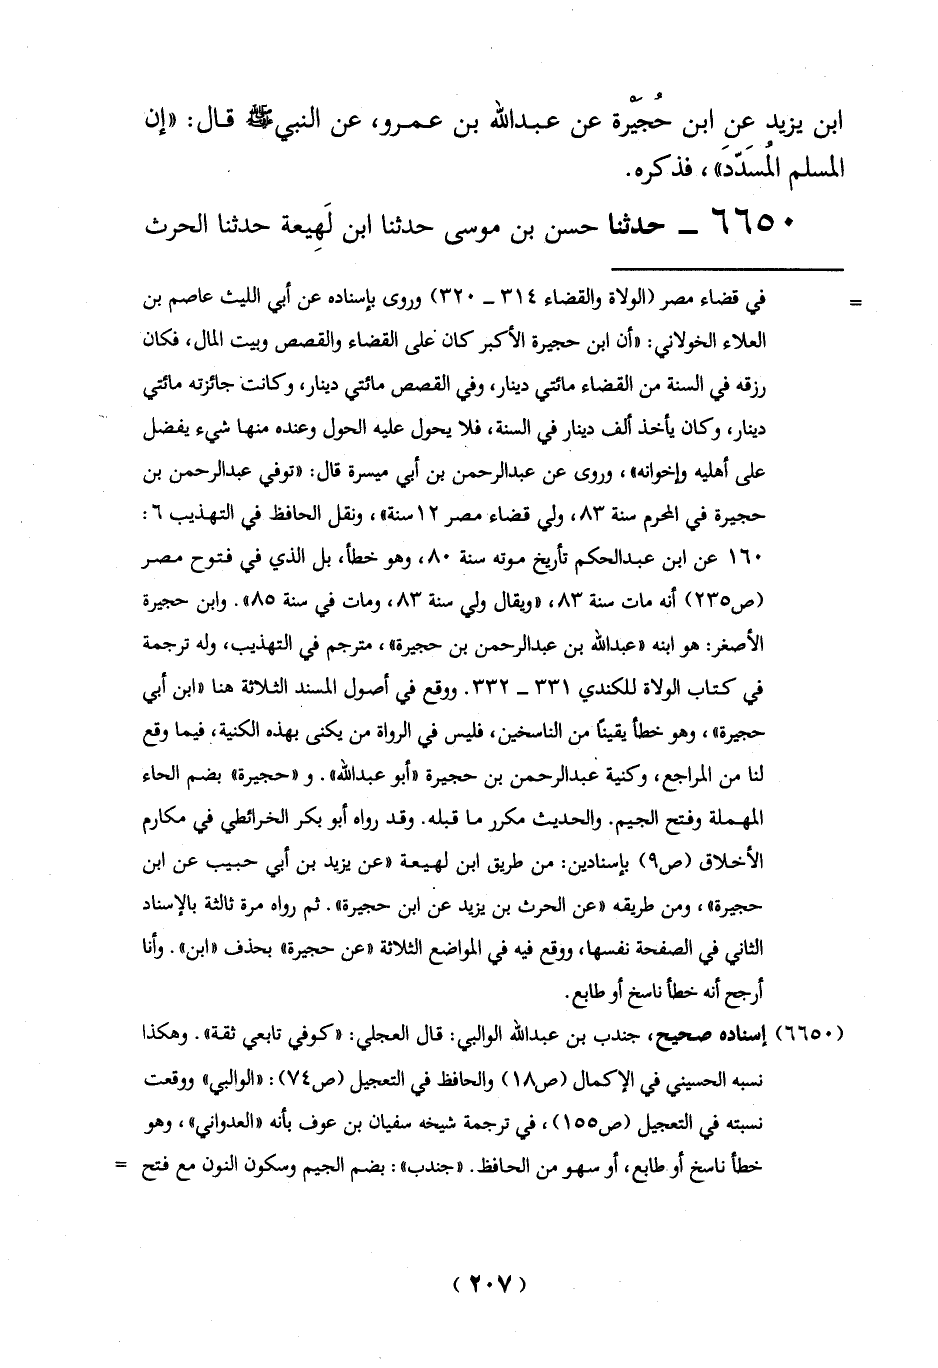 ابن يزيد عن ابن حُجَيْرة عن عبدالله بن عمرو، عن النبي ﷺ قال: «إن
المسلم المُسَدَّدَ»، فذكره.
٦٦٥٠ ــ حدثنا حسن بن موسى حدثنا ابن لَهِيعة حدثنا الحرث
= في قضاء مصر (الولاة والقضاء ٣١٤ ــ ٣٢٠) وروى بإسناده عن أبي الليث عاصم بن
العلاء الخولاني: «أن ابن حجيرة الأكبر كان على القضاء والقصص وبيت المال، فكان
رزقه في السنة من القضاء مائتي دينار، وفي القصص مائتي دينار، وكانت جائزته مائتي
دينار، وكان يأخذ ألف دينار في السنة، فلا يحول عليه الحول وعنده منها شيء يفضل
على أهليه وإخوانه»، وروى عن عبدالرحمن بن أبي ميسرة قال: «توفي عبدالرحمن بن
حجيرة في المحرم سنة ٨٣، ولي قضاء مصر ١٢ سنة»، ونقل الحافظ في التهذيب ٦:
١٦٠ عن ابن عبدالحكم تأريخ موته سنة ٨٠، وهو خطأ، بل الذي في فتوح مصر
(ص٢٣٥) أنه مات سنة ٨٣، «ويقال ولي سنة ٨٣، ومات في سنة ٨٥». وابن حجيرة
الأصغر: هو ابنه «عبدالله بن عبدالرحمن بن حجيرة»، مترجم في التهذيب، وله ترجمة
في كتاب الولاة للكندي ٣٣١ ــ ٣٣٢. ووقع في أصول المسند الثلاثة هنا «ابن أبي
حجيرة»، وهو خطأ يقينًا من الناسخين، فليس في الرواة من يكنى بهذه الكنية، فيما وقع
لنا من المراجع، وكنية عبدالرحمن بن حجيرة «أبو عبدالله». و «حجيرة» بضم الحاء
المهملة وفتح الجيم. والحديث مكرر ما قبله. وقد رواه أبو بكر الخرائطي في مكارم
الأخلاق (ص٩) بإسنادين: من طريق ابن لهيعة «عن يزيد بن أبي حبيب عن ابن
حجيرة»، ومن طريقه «عن الحرث بن يزيد عن ابن حجيرة». ثم رواه مرة ثالثة بالإسناد
الثاني في الصفحة نفسها، ووقع فيه في المواضع الثلاثة «عن حجيرة» بحذف «ابن». وأنا
أرجح أنه خطأ ناسخ أو طابع.
(٦٦٥٠) إسناده صحيح، جندب بن عبدالله الوالبي: قال العجلي: «كوفي تابعي ثقة». وهكذا
نسبه الحسيني في الإكمال (ص١٨) والحافظ في التعجيل (ص٧٤): «الوالبي» ووقعت
نسبته في التعجيل (ص١٥٥)، في ترجمة شيخه سفيان بن عوف بأنه «العدواني»، وهو
خطأ ناسخ أو طابع، أو سهو من الحافظ. «جندب»: بضم الجيم وسكون النون مع فتح =
(٢٠٧)